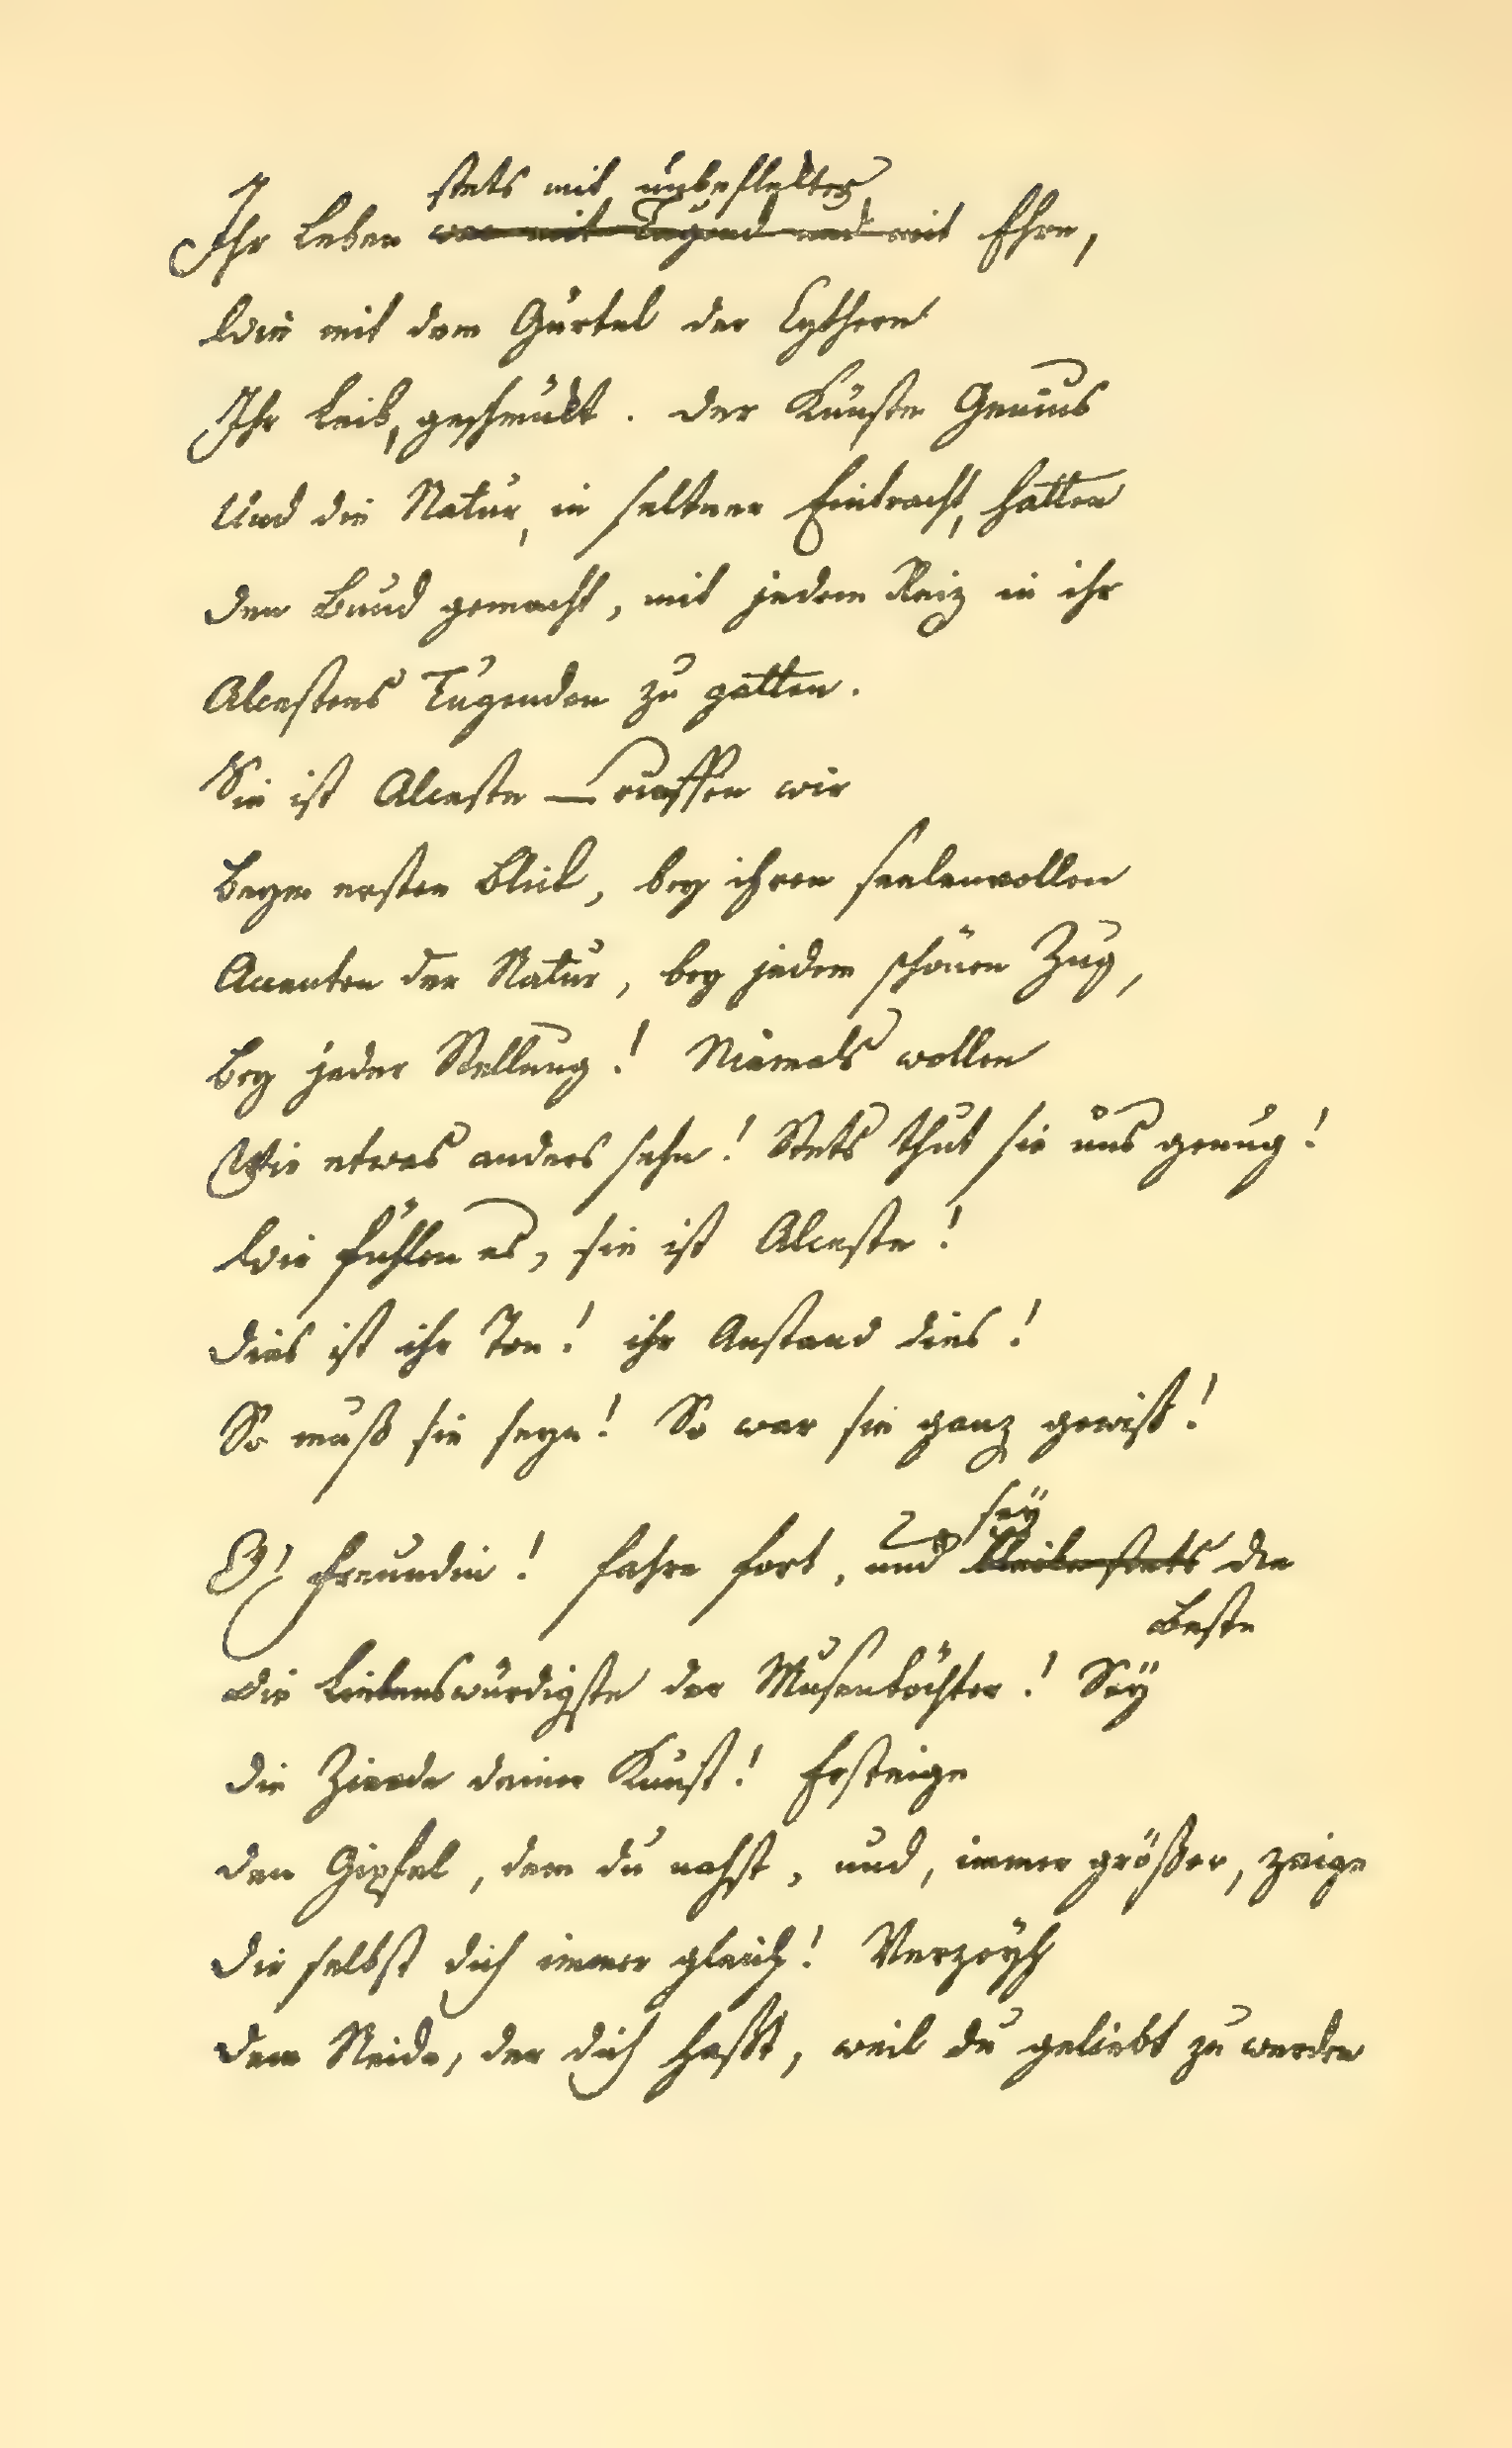 stets mit unbeflekter
Ihr Leben war mit Tugend und mit Ehre,
Wie mit dem Gürtel der Cythere
Ihr Leib, geschmükt. Der Künste Genius
Und die Natur, in seltner Eintracht, hatten
Den Bund gemacht, mit jedem Reiz in ihr
Alcestens Tugenden zu gatten.
Sie ist Alceste — rueffen wir
Beym ersten Blick, bey ihren seelenvollen
Accenten der Natur, bey jedem schönen Zug,
Bey jeder Stellung! Niemals wollen
Wir etwas anders sehn! Stets thut sie uns genug!
Wir fühlen es, sie ist Alceste!
Dies ist ihr Ton! ihr Anstand dies!
So muß sie seyn! So war sie ganz gewiß!
sey
O! Freundin! fahre fort, und bleibe stets die
Beste
Die Liebenswürdigste der Musentöchter! Sey
Die Zierde deiner Kunst! Ersteige
Den Gipfel, dem du nahst, und, immer größer, zeige
Dir selbst dich immer gleich! Verzeyh
Dem Neide, der dich hasst, weil du geliebt zu werden